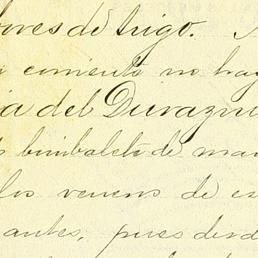 ores de trigo.
comiento no hay
ia del Durazn
bimbalete de man
los venenos de es
antes, pues desd